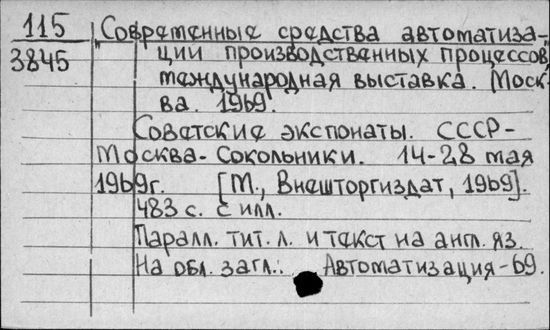 115
3845
"Современные средства автоматиза-
ции производственных процессов,
международная выставка. Моск-
ва. 1969.
Советские экспонаты. СССР-
Москва-Сокольники. 14-28 мая
1969г. [М., Внешторгиздат, 1969].
483 с. с илл.
Паралл. тит. л. и текст на англ. яз.
На обл. загл.: Автоматизация-69.